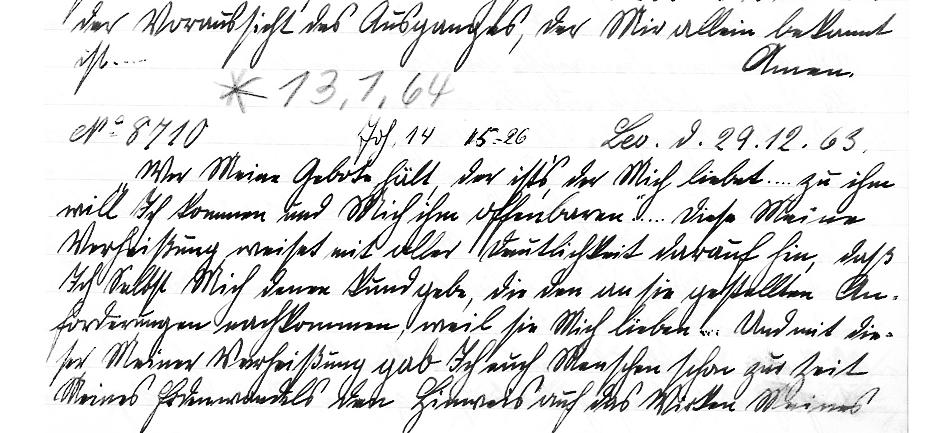 der Voraussicht des Ausganges, der Mir allein bekannt
ist....
Amen.
* 13.1.64
No 8710 Joh. 14 15-26 Leo. d. 29.12.63.
Wer Meine Gebote hält, der ist's, der Mich liebet.... zu ihm
will Ich kommen und Mich ihm offenbaren".... Diese Meine
Verheißung weiset mit aller Deutlichkeit darauf hin, daß
Ich Selbst Mich denen kundgebe, die den an sie gestellten An-
forderungen nachkommen, weil sie Mich lieben... Und mit die-
ser Meiner Verheißung gab Ich euch Menschen schon zur Zeit
Meines Erdenwandels den Hinweis auf das Wirken Meines